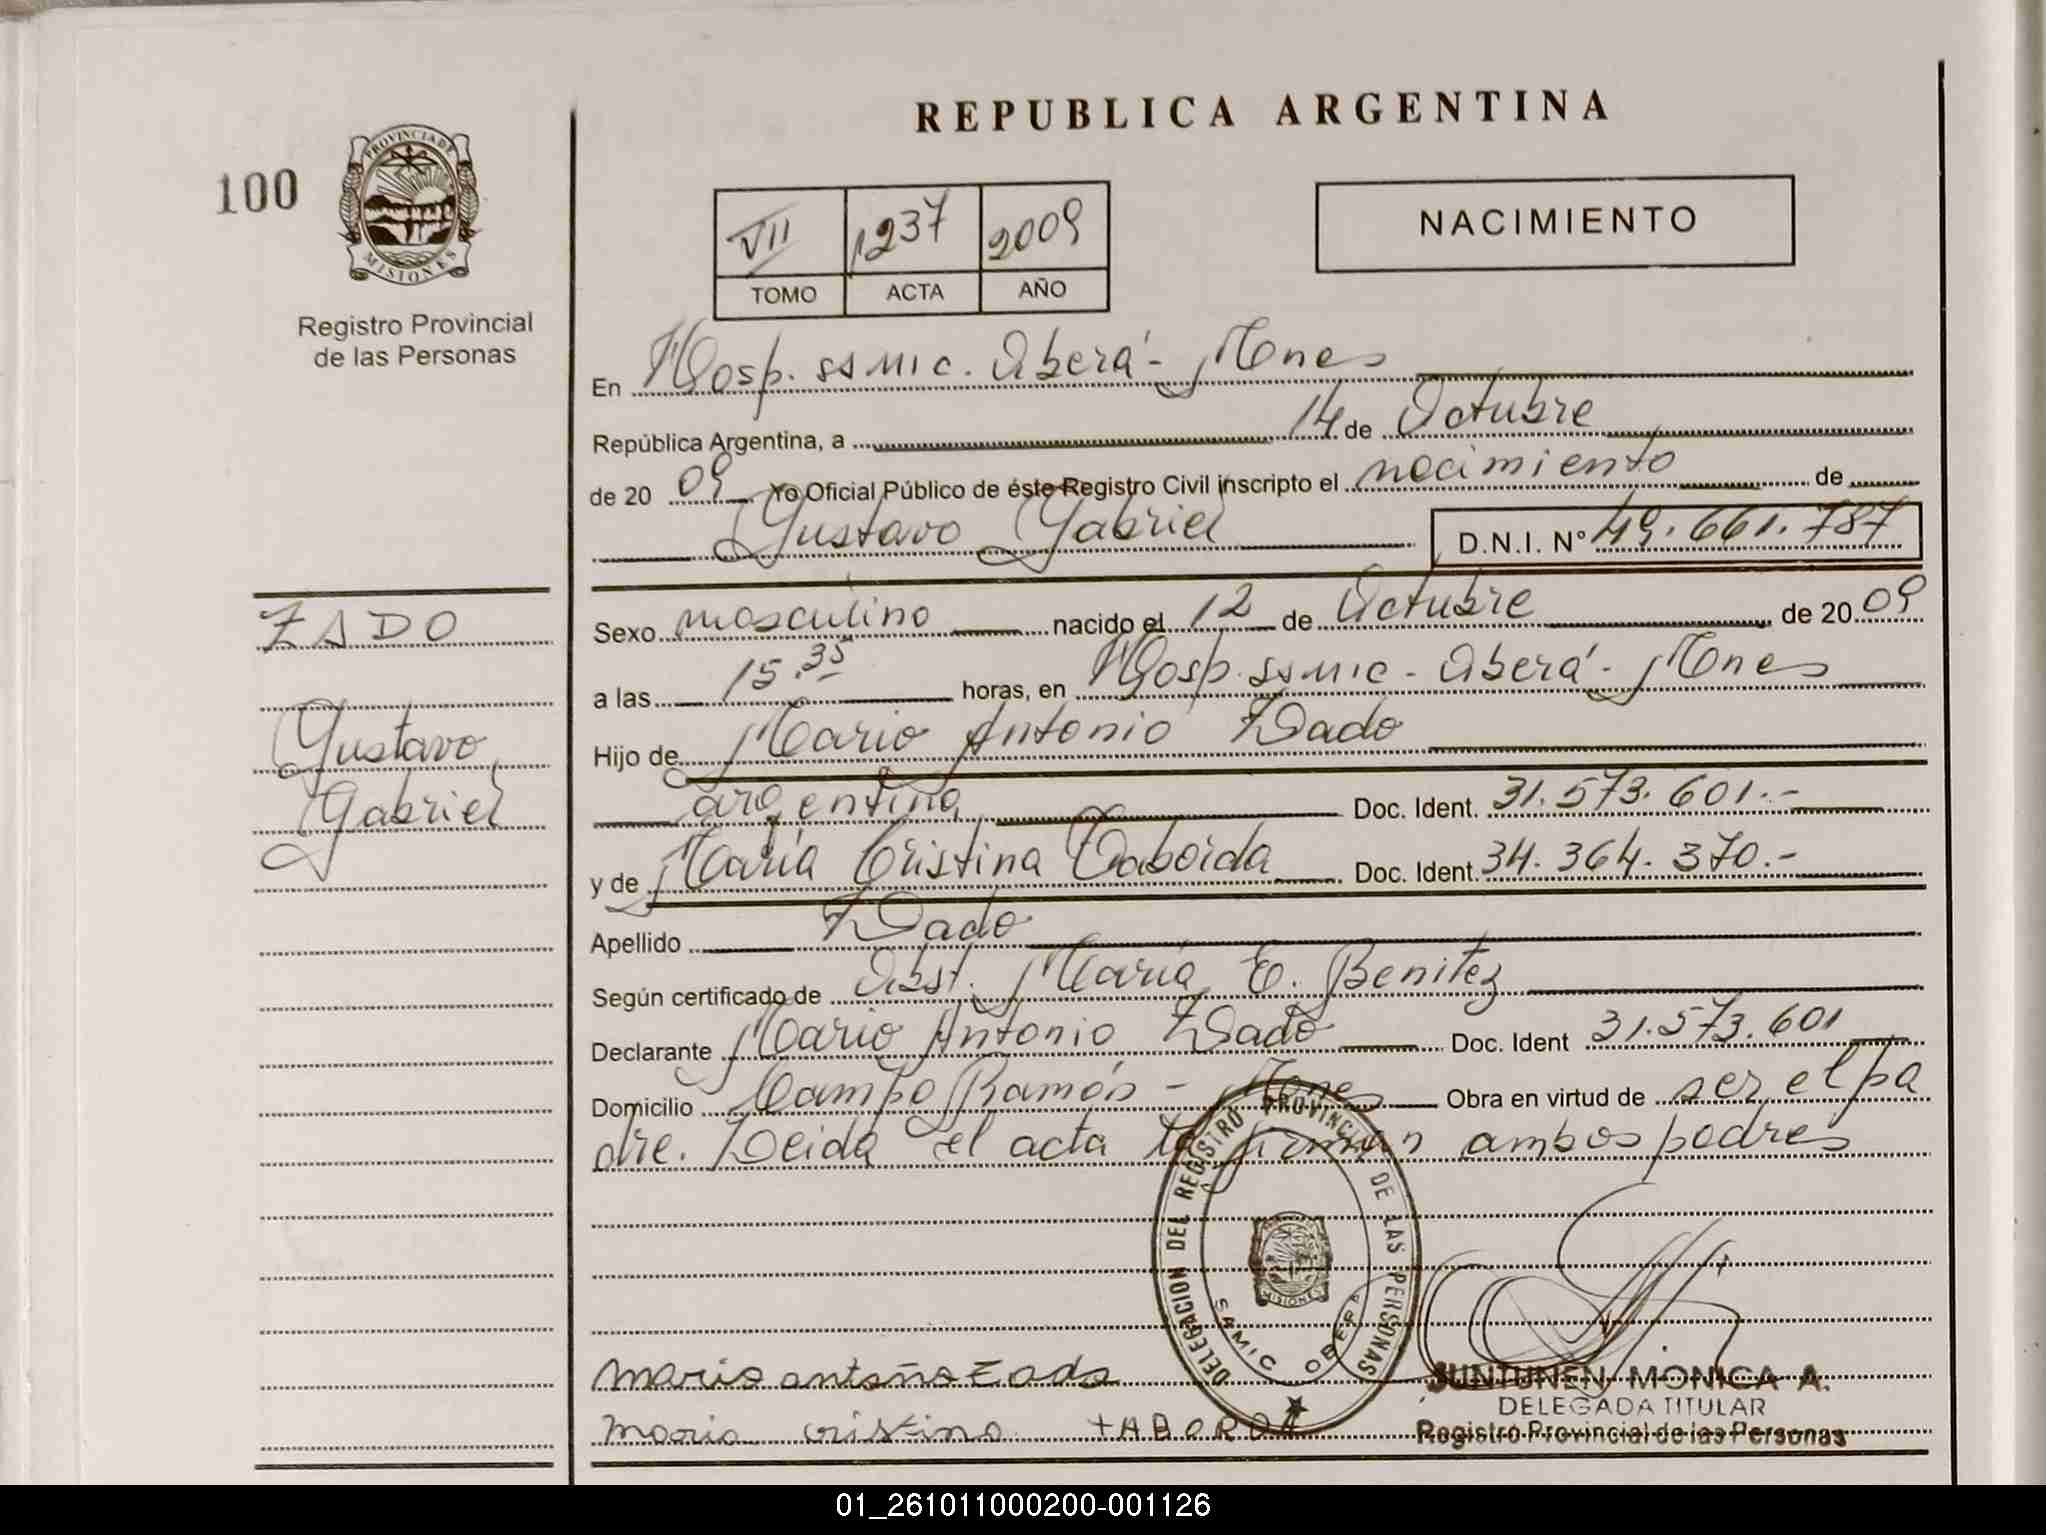 REPUBLICA ARGENTINA
100
PROVINCIA DE
MISIONES
Registro Provincial
de las Personas
VII 1237 2009
TOMO ACTA AÑO
NACIMIENTO
En Hosp. SAMIC. Oberá - Mnes
República Argentina, a 14 de Octubre
de 20 09 Yo Oficial Público de éste Registro Civil inscripto el nacimiento de
Gustavo Gabriel D.N.I. N° 49.661.787
ZADO
Gustavo
Gabriel
Sexo masculino nacido el 12 de Octubre de 20 09
a las 15.35 horas, en Hosp. SAMIC - Oberá - Mnes
Hijo de Mario Antonio Zado
argentina Doc. Ident. 31.573.601.-
y de María Cristina Taborda Doc. Ident. 34.364.370.-
Apellido Zado
Según certificado de Obst. María E. Benitez
Declarante Mario Antonio Zado Doc. Ident 31.573.601
Domicilio Campo Ramón - Mnes Obra en virtud de ser el pa
dre. Leida el acta la firman ambos padres
DELEGACION DEL REGISTRO PROVINCIAL DE LAS PERSONAS
MISIONES
SAMIC OBERA
mario antonio Zado
maria cristina TABORDA
JUNTUNEN MONICA A.
DELEGADA TITULAR
Registro Provincial de las Personas
01_261011000200-001126